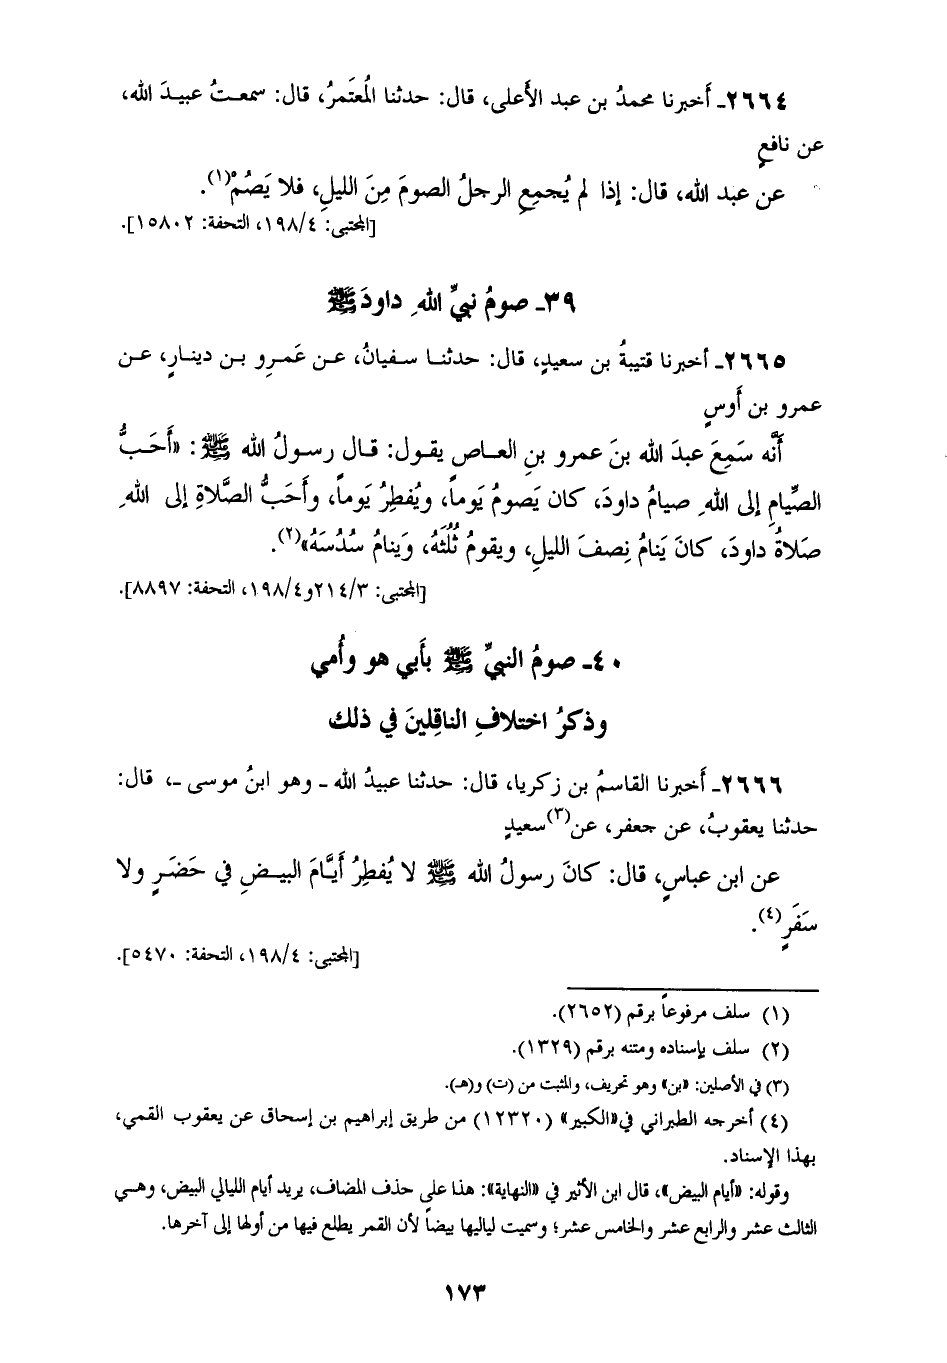 ٢٦٦٤ـ أَخبرنا محمدُ بن عبد الأَعلى، قال: حدثنا المُعتَمرُ، قال: سمعتُ عبيدَ الله،
عن نافعٍ
عن عبد الله، قال: إذا لم يُجمِعِ الرجلُ الصومَ مِنَ الليلِ، فلا يَصُمْ(١).
[المجتبى: ١٩٨/٤، التحفة: ١٥٨٠٢].
٣٩ـ صومُ نبيِّ اللهِ داودَ ﷺ
٢٦٦٥ـ أخبرنا قتيبةُ بن سعيدٍ، قال: حدثنا سفيانُ، عن عَمرِو بن دينارٍ، عن
عمرو بن أَوسٍ
أَنَّه سَمِعَ عبدَ الله بنَ عمرو بنِ العاصِ يقول: قال رسولُ الله ﷺ: «أَحَبُّ
الصِّيامِ إلى اللهِ صيامُ داودَ، كان يَصومُ يَوماً، ويُفطِرُ يَوماً، وأَحَبُّ الصَّلاةِ إلى اللهِ
صَلاةُ داودَ، كانَ يَنامُ نِصفَ الليلِ، ويقومُ ثُلُثَهُ، وَينامُ سُدُسَهُ»(٢).
[المجتبى: ٢١٤/٣ و١٩٨/٤، التحفة: ٨٨٩٧].
٤٠ـ صومُ النبيِّ ﷺ بأَبي هو وأُمي
وذكرُ اختلافِ الناقِلينَ في ذلك
٢٦٦٦ـ أَخبرنا القاسمُ بن زكريا، قال: حدثنا عبيدُ الله ـ وهو ابنُ موسى ـ، قال:
حدثنا يعقوبُ، عن جعفر، عن(٣) سعيدٍ
عن ابن عباسٍ، قال: كانَ رسولُ الله ﷺ لا يُفطِرُ أَيَّامَ البيضِ في حَضَرٍ ولا
سَفَرٍ(٤).
[المجتبى: ١٩٨/٤، التحفة: ٥٤٧٠].
(١) سلف مرفوعاً برقم (٢٦٥٢).
(٢) سلف بإسناده ومتنه برقم (١٣٢٩).
(٣) في الأصلين: «بن» وهو تحريف، والمثبت من (ت) و(هـ).
(٤) أخرجه الطبراني في«الكبير» (١٢٣٢٠) من طريق إبراهيم بن إسحاق عن يعقوب القمي،
بهذا الإسناد.
وقوله: «أيام البيض»، قال ابن الأثير في «النهاية»: هذا على حذف المضاف، يريد أيام الليالي البيض، وهي
الثالث عشر والرابع عشر والخامس عشر؛ وسميت لياليها بيضاً لأن القمر يطلع فيها من أولها إلى آخرها.
١٧٣